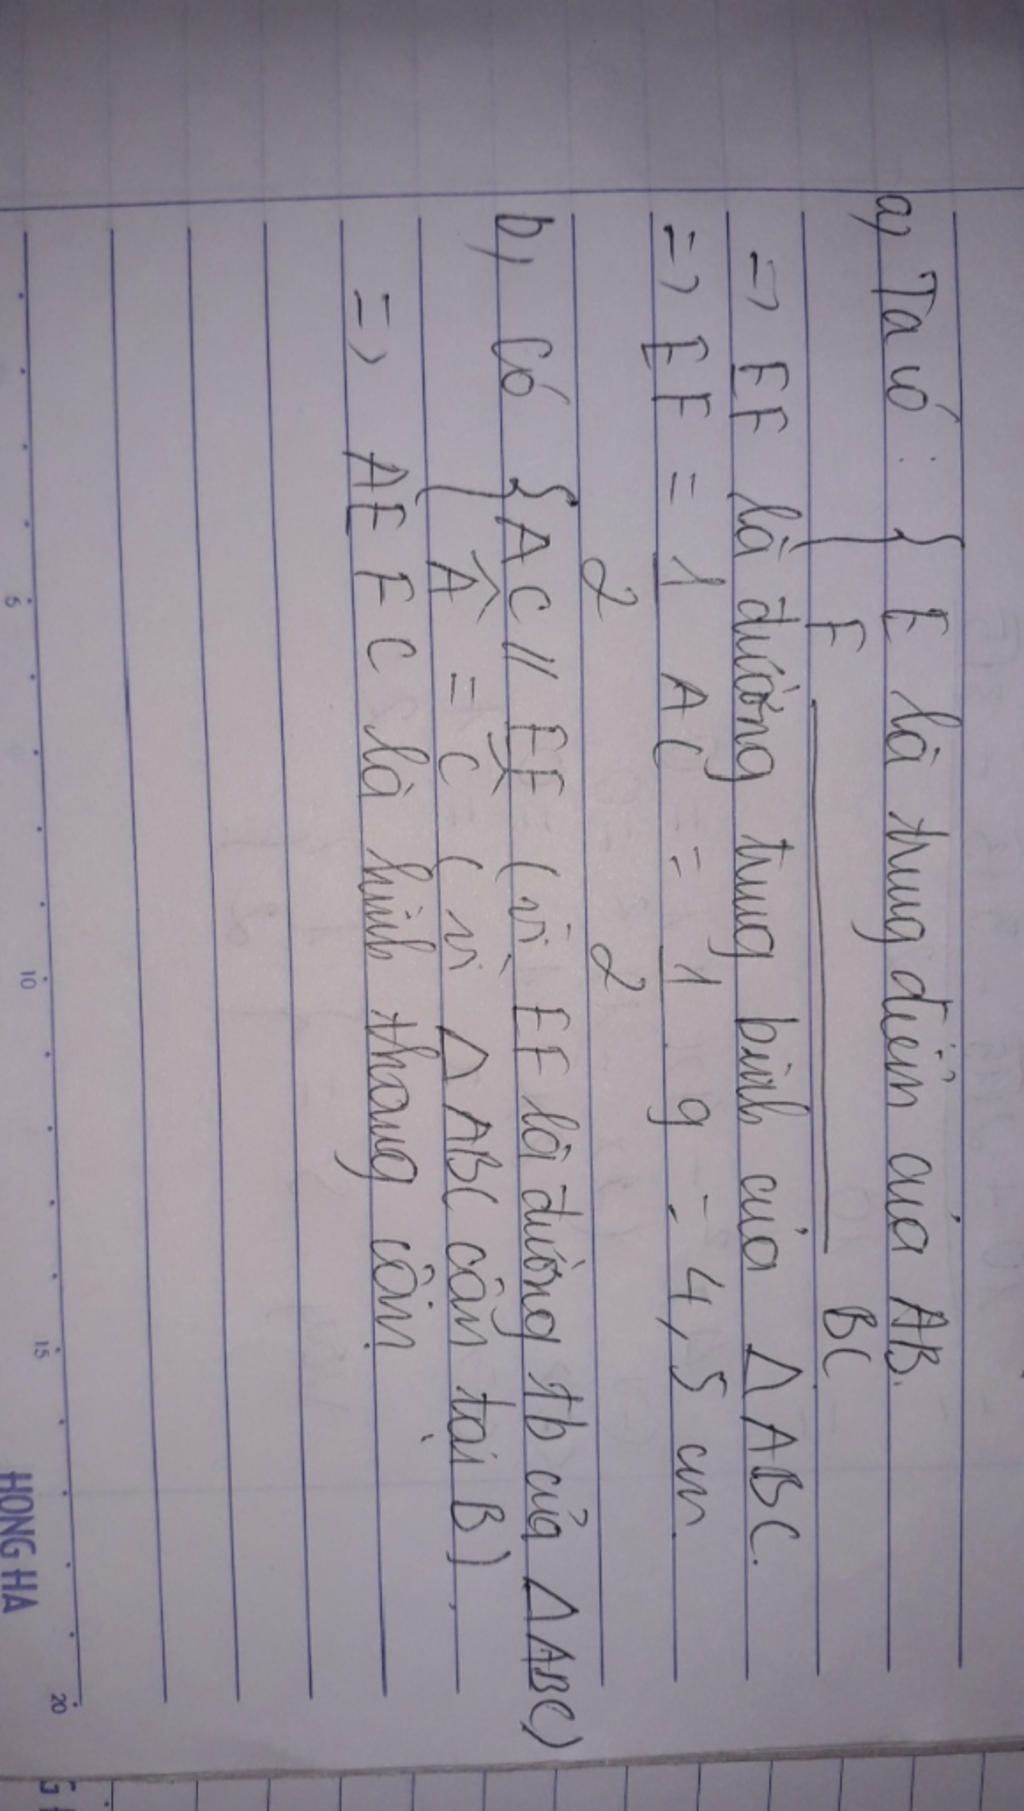 a, Ta có : { E là trung điểm của AB.
F ———— BC
=> EF là đường trung bình của Δ ABC.
=> EF = 1/2 AC = 1/2 . 9 = 4,5 cm
b, Có { AC // EF (vì EF là đường tb của Δ ABC)
Â = Ĉ (vì Δ ABC cân tại B).
=> AEFC là hình thang cân
5 10 15 20
HONG HA